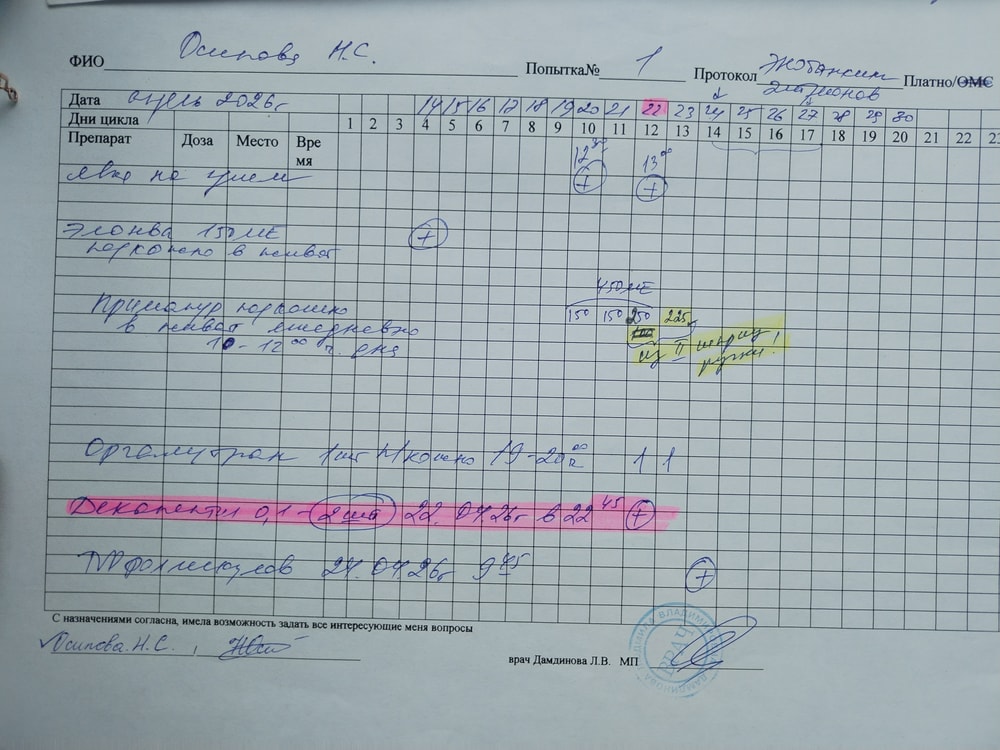 ФИО Осипова Н.С. Попытка№ 1 Протокол Платно/ОМС
эмбрионов
Дата апрель 2026г 14 15 16 17 18 19 20 21 22 23 24 25 26 27 28 29 30
Дни цикла 1 2 3 4 5 6 7 8 9 10 11 12 13 14 15 16 17 18 19 20 21 22 23
Препарат Доза Место Время
12 13⁰⁰
явка на прием + +
Элонва 150 МЕ +
подкожно в живот
450МЕ
Примапур подкожно 150 150 250 225
в живот ежедневно
10-12⁰⁰ ч. дня из II шприц ручки!
Оргалутран 1шт п/кожно 19-20⁰⁰ч 1 1
Декапептил 0,1 - 2 шт 22.04.26г в 22⁴⁵ +
фолликулов 24.04.26г 9⁴⁵ +
С назначениями согласна, имела возможность задать все интересующие меня вопросы
Осипова Н.С.,
врач Дамдинова Л.В. МП
ВРАЧ